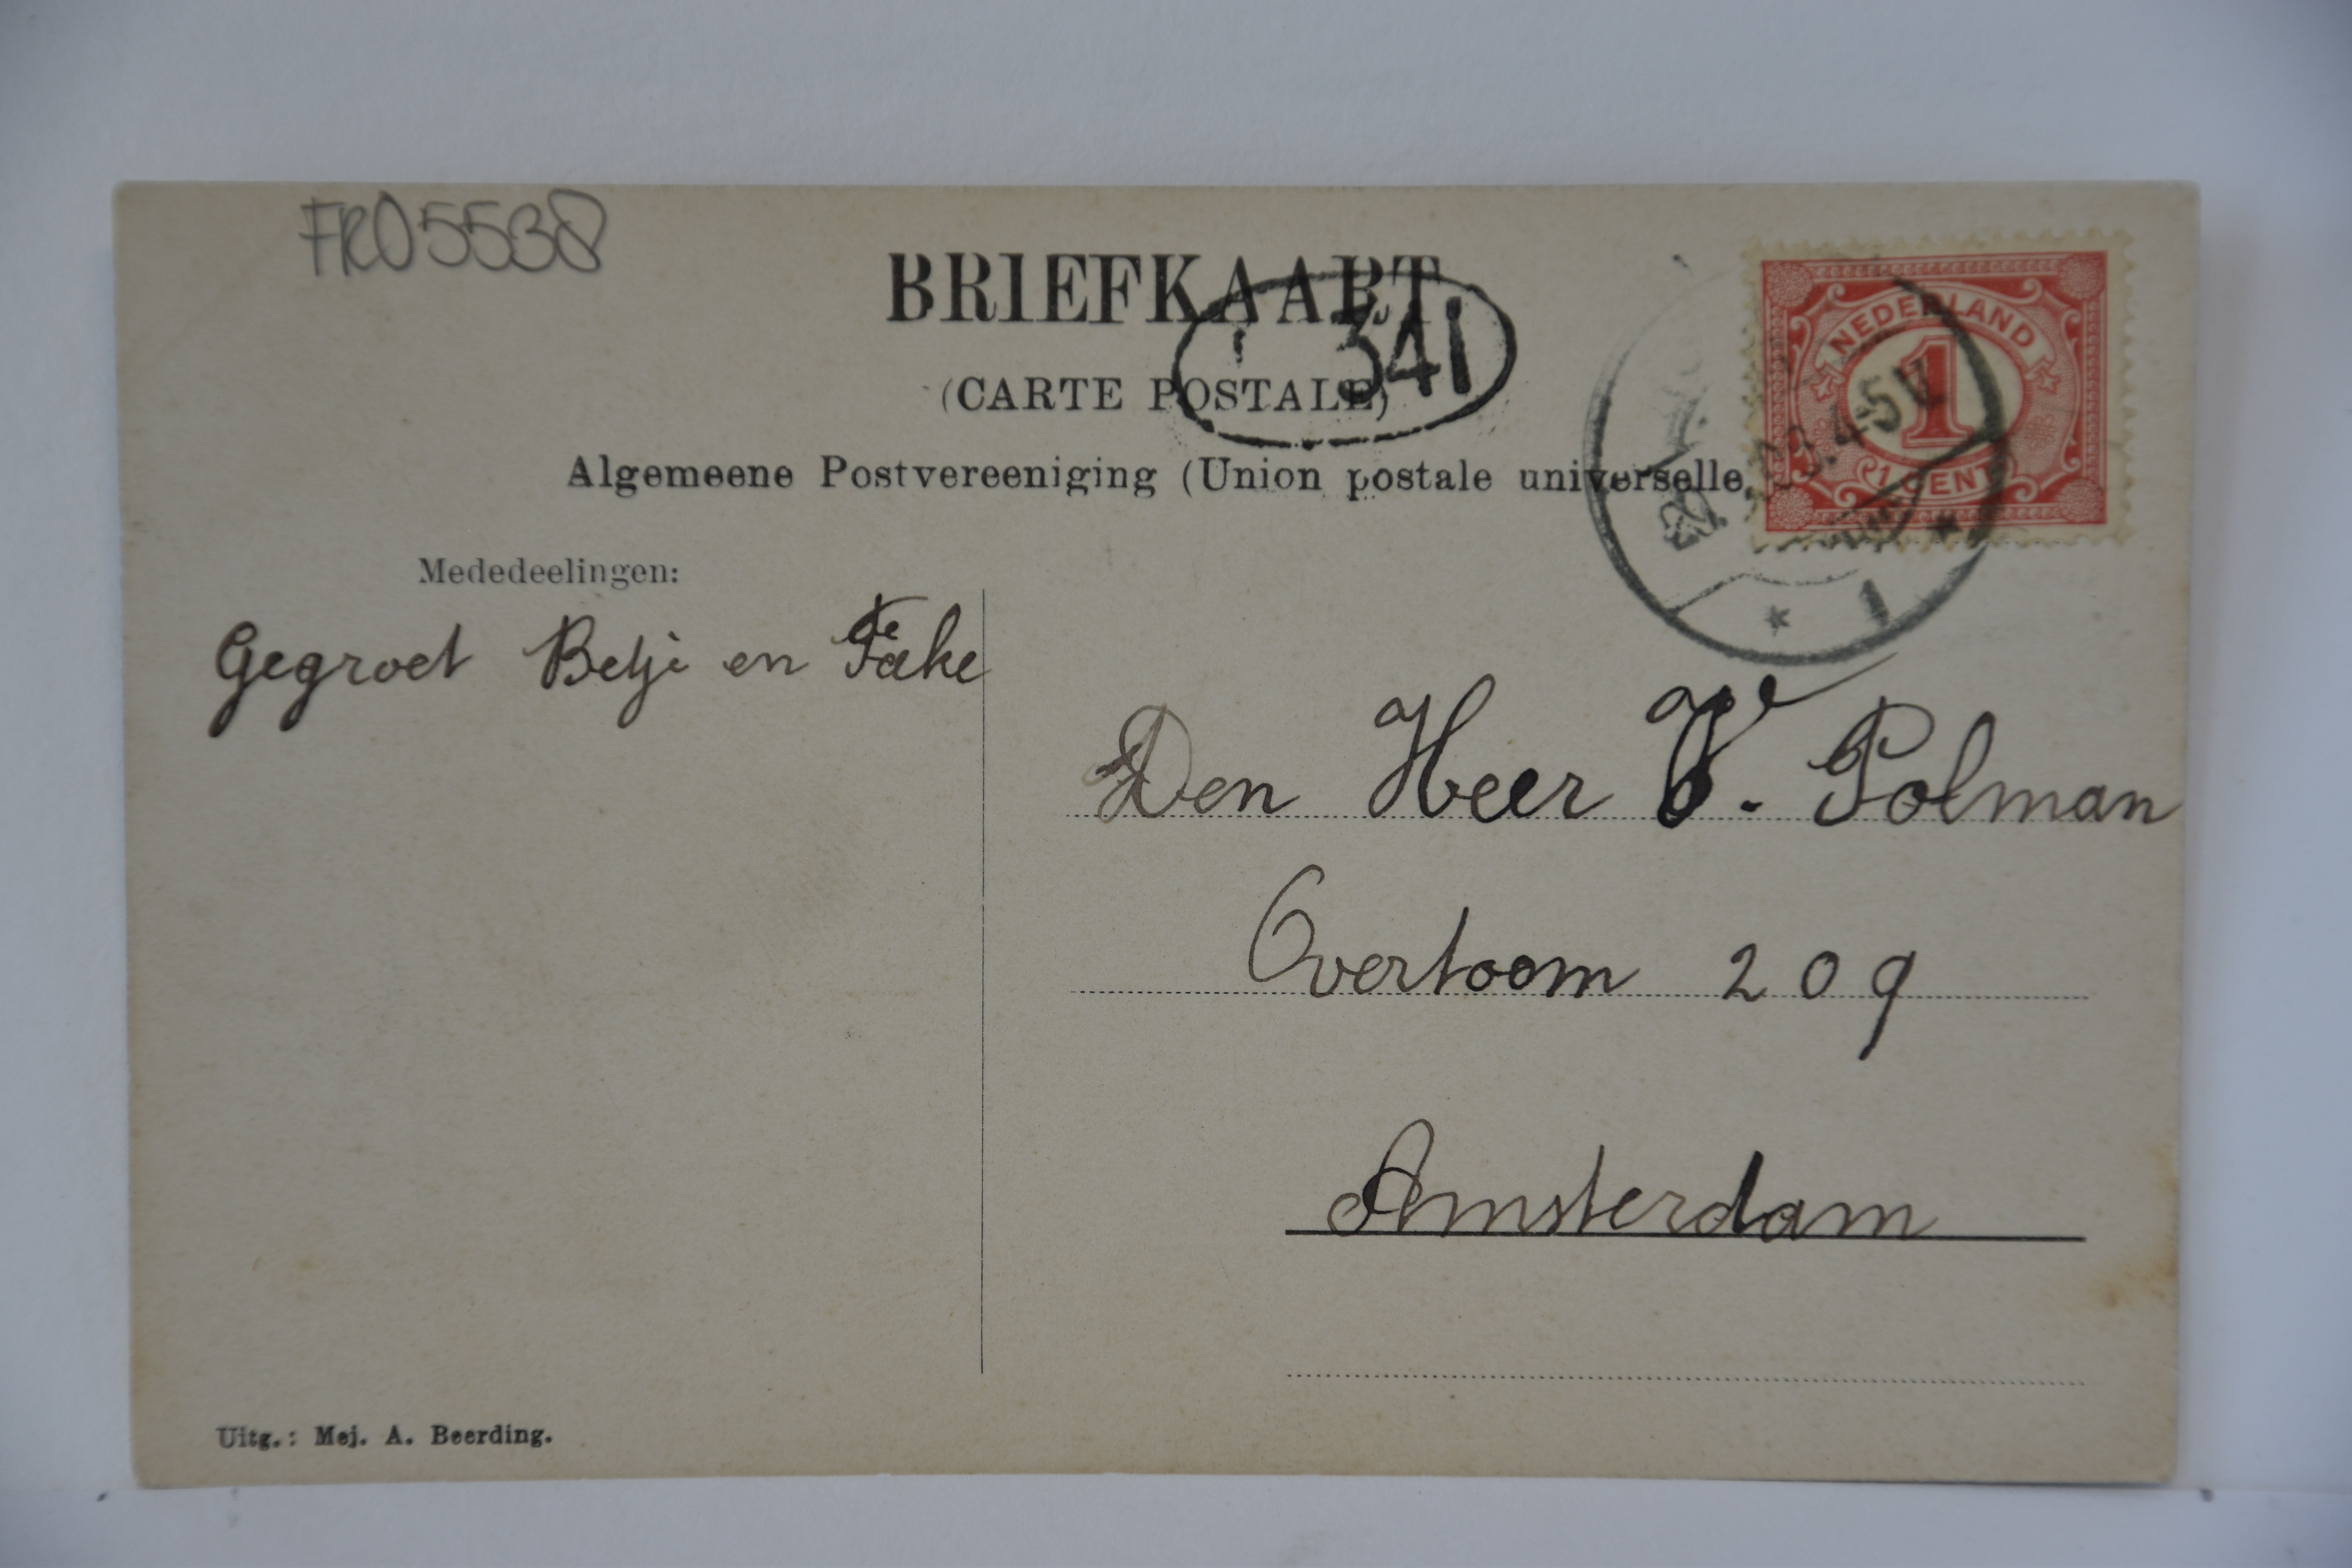 FR05538
BRIEFKAART
341
(CARTE POSTALE)
Algemeene Postvereeniging (Union postale universelle,
NEDERLAND
1
1 CENT
4-5
1
Mededeelingen:
Gegroet Betje en Fake
Den Heer V. Polman
Overtoom 209
Amsterdam
Uitg.: Mej. A. Beerding.